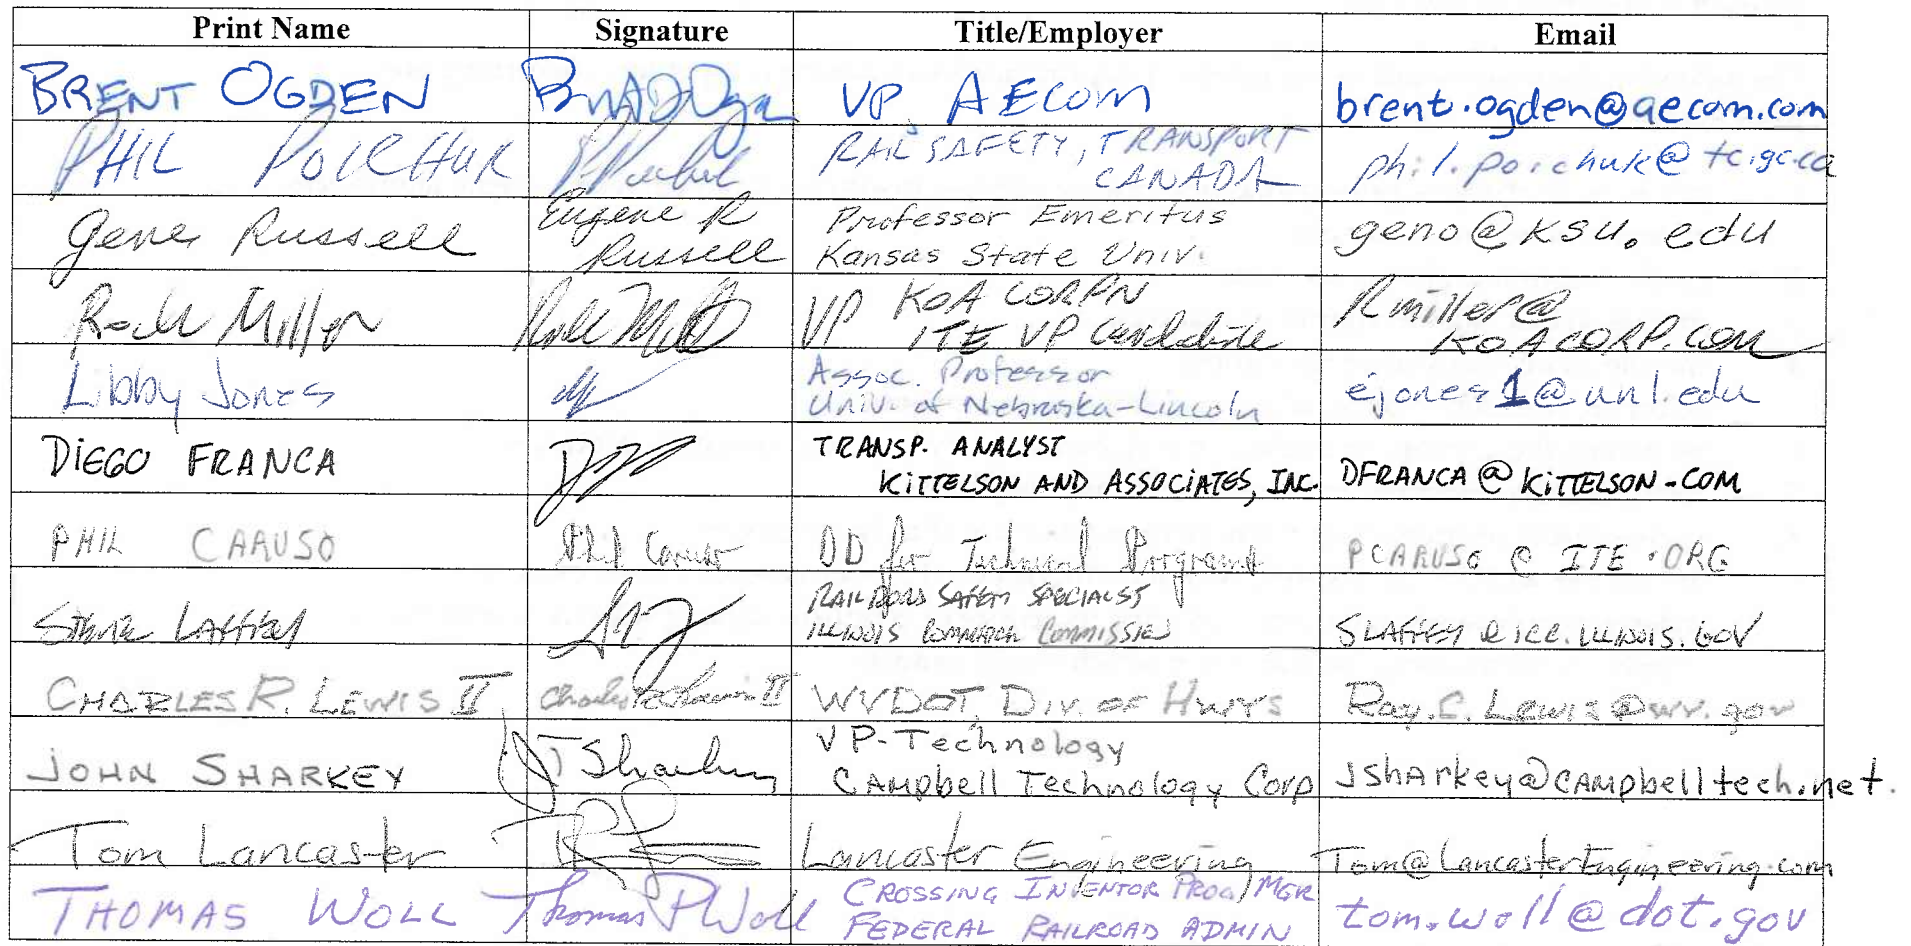 Print Name Signature Title/Employer Email
BRENT OGDEN VP, AECOM brent.ogden@aecom.com
PHIL POICHUK RAIL SAFETY, TRANSPORT
CANADA phil.poichuk@tc.gc.ca
Gene Russell Eugene R
Russell Professor Emeritus
Kansas State Univ. geno@ksu.edu
Rock Miller VP KOA CORPN
ITE VP Candidate Rmiller@
KOACORP.com
Libby Jones Assoc. Professor
Univ. of Nebraska-Lincoln ejones1@unl.edu
DIEGO FRANCA TRANSP. ANALYST
KITTELSON AND ASSOCIATES, INC. DFRANCA@KITTELSON.COM
PHIL CARUSO Phil Caruso DD for Technical Programs PCARUSO @ ITE.ORG
STEVE LAFFEY RAILROAD SAFETY SPECIALIST
ILLINOIS COMMERCE COMMISSION SLAFFEY@ICC.ILLINOIS.GOV
CHARLES R. LEWIS II WVDOT, DIV. OF HWYS Ray.C.Lewis@wv.gov
JOHN SHARKEY J Sharkey VP-Technology
CAMpbell Technology Corp JShArkey@CAMpbelltech.net.
Tom Lancaster Lancaster Engineering Tom@LancasterEngineering.com
THOMAS WOLL Thomas P Woll CROSSING INVENTOR PROG/MGR
FEDERAL RAILROAD ADMIN tom.woll@dot.gov